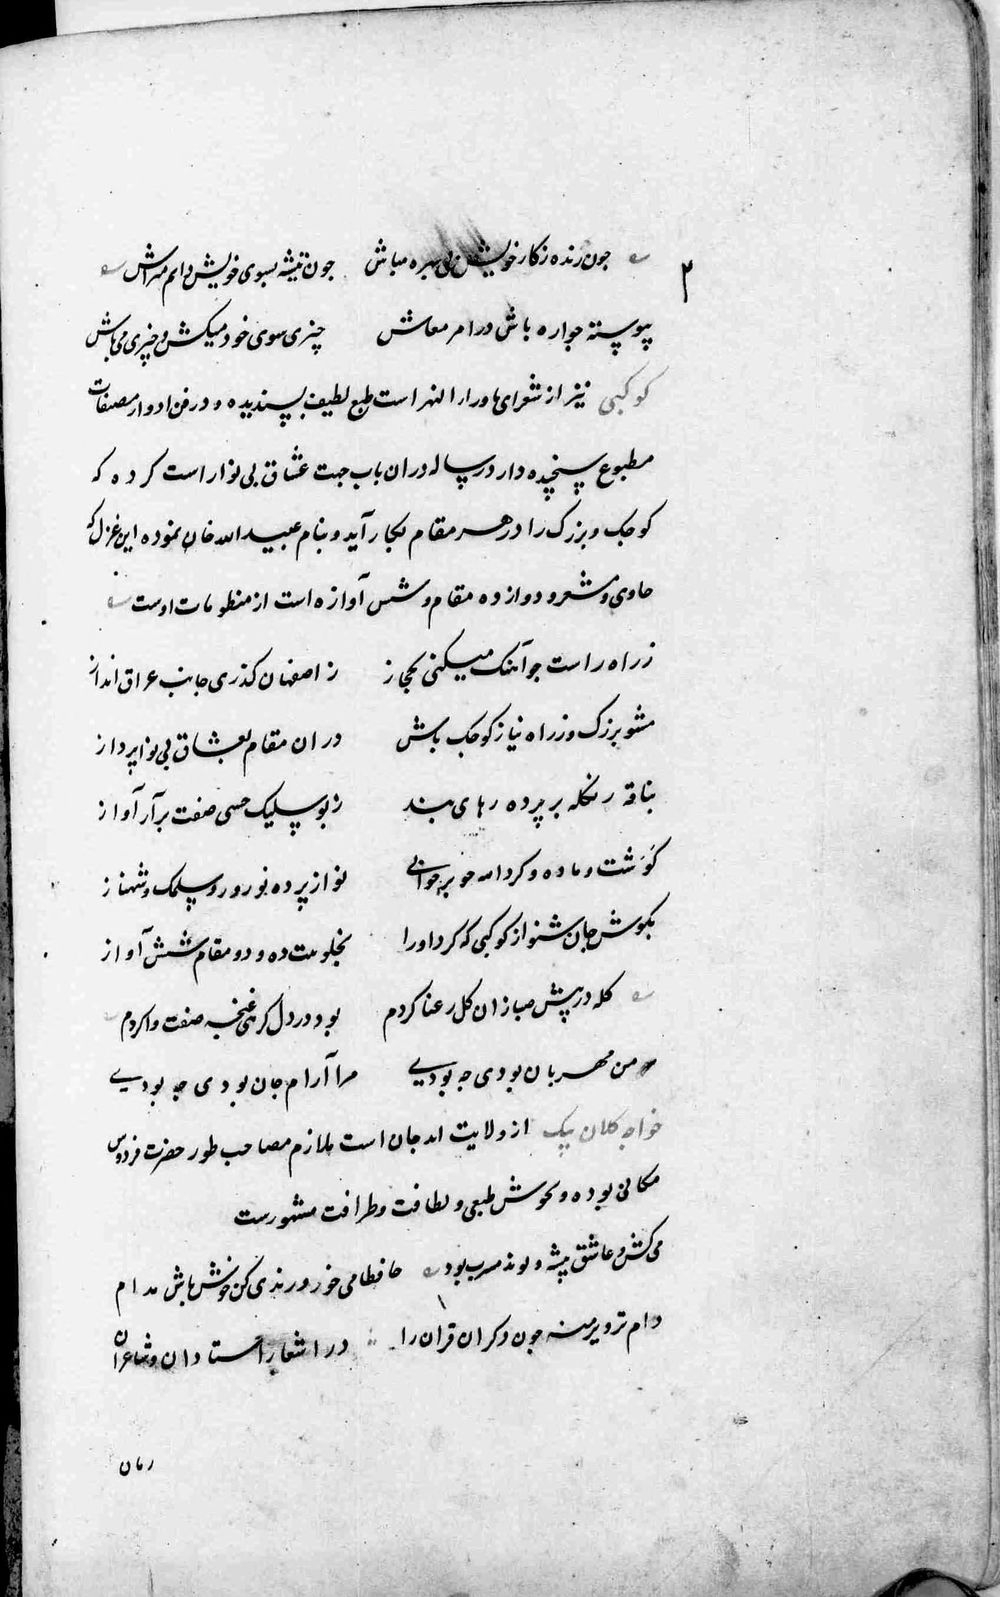 ۲
چون رنده ز کار خویش بی بهره مباش چون تیشه بسوی خویش دایم متراش
پیوسته چو اره باش در امر معاش چیزی سوی خود میکش و چیزی می پاش
کوکبی نیز از شعرای ماورا النهر است طبع لطیف پسندیده و در فن ادوار مصنفات
مطبوع سنجیده دارد رساله دران باب جهت عشاق بی نوا راست کرده که
کوچک و بزرگ را در هر مقام بکار آید و بنام عبید الله خان نموده این غزل که
حاوی و مشعر دوازده مقام و شش آوازه است از منظومات اوست
ز راه راست چو آهنگ میکنی بحجاز ز اصفهان گذری جانب عراق انداز
مشو بزرگ و ز راه نیاز کوچک باش دران مقام بعشاق بی نوا پرداز
بناقه زنگله بر پرده رهاوی بند ز بوسلیک حسینی صفت برآر آواز
گوشت و ماده و گردانیه چو برخوانی نواز پرده نوروز و سلمک و شهناز
بگوش جان شنو از کوکبی که کرد او را بخلوت ده و دو مقام شش آواز
گله در پیش صبا زان گل رعنا کردم بود در دل گرهی غنچه صفت وا کردم
من مهربان بودی چه بودی مرا آرام جان بودی چه بودی
خواجه کلان بیک از ولایت اندجان است ملازم مصاحب طور حضرت فردوس
مکانی بوده و بخوش طبعی و لطافت و ظرافت مشهورست
می کش و عاشق پیشه و لوند مشرب بود حافظا می خور و رندی کن و خوش باش مدام
دام تزویر منه چون دگران قران را در اشعار استادان و شاعران
زمان